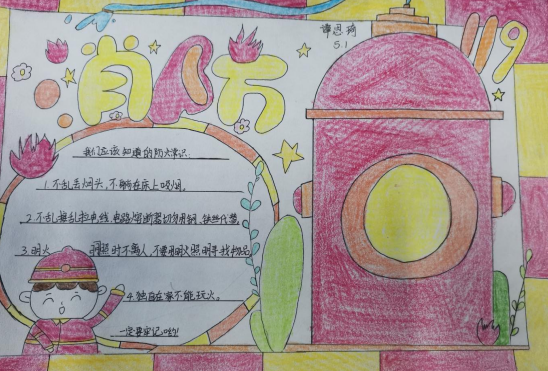 消防
119
5.1
我们应该知道的防火常识:
1.不乱丢烟头,不躺在床上吸烟。
2.不乱接乱拉电线,电路熔断器切勿用铜、铁丝代替。
3.明火 照时不离人,不要用明火照明寻找物品
4.独自在家不能玩火。
一定要牢记哟!